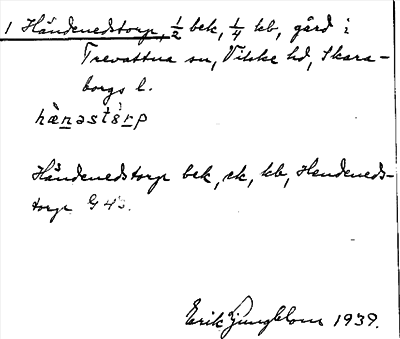 1 Händenedstorp, 1/2 bek, 1/4 kb, gård i
Trevattna sn, Vilske hd, Skara-
borgs l.
hæ̀nəstòrp
Händenedstorp bek, ek, kb, Hendeneds-
torp G 43.
Erik Ljungblom 1939.